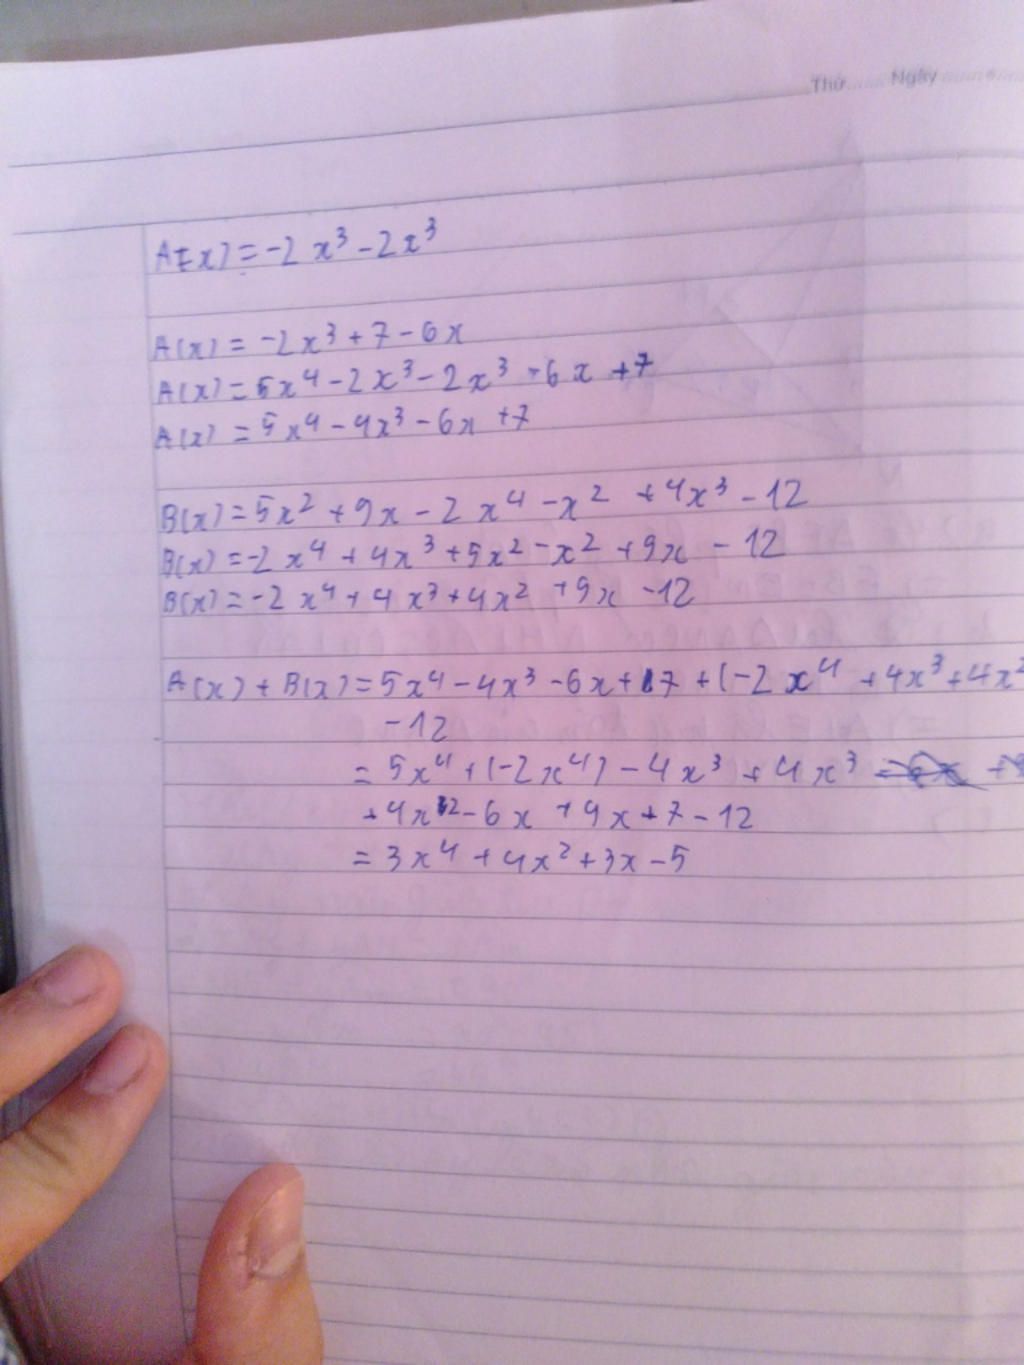 Thứ ...... Ngày ......
A(x) = -2x³ - 2x³
A(x) = -2x³ + 7 - 6x
A(x) = 5x⁴ - 2x³ - 2x³ - 6x + 7
A(x) = 5x⁴ - 4x³ - 6x + 7
B(x) = 5x² + 9x - 2x⁴ - x² + 4x³ - 12
B(x) = -2x⁴ + 4x³ + 5x² - x² + 9x - 12
B(x) = -2x⁴ + 4x³ + 4x² + 9x - 12
A(x) + B(x) = 5x⁴ - 4x³ - 6x + 7 + (-2x⁴ + 4x³ + 4x²
-12
= 5x⁴ + (-2x⁴) - 4x³ + 4x³
+ 4x² - 6x + 9x + 7 - 12
= 3x⁴ + 4x² + 3x - 5